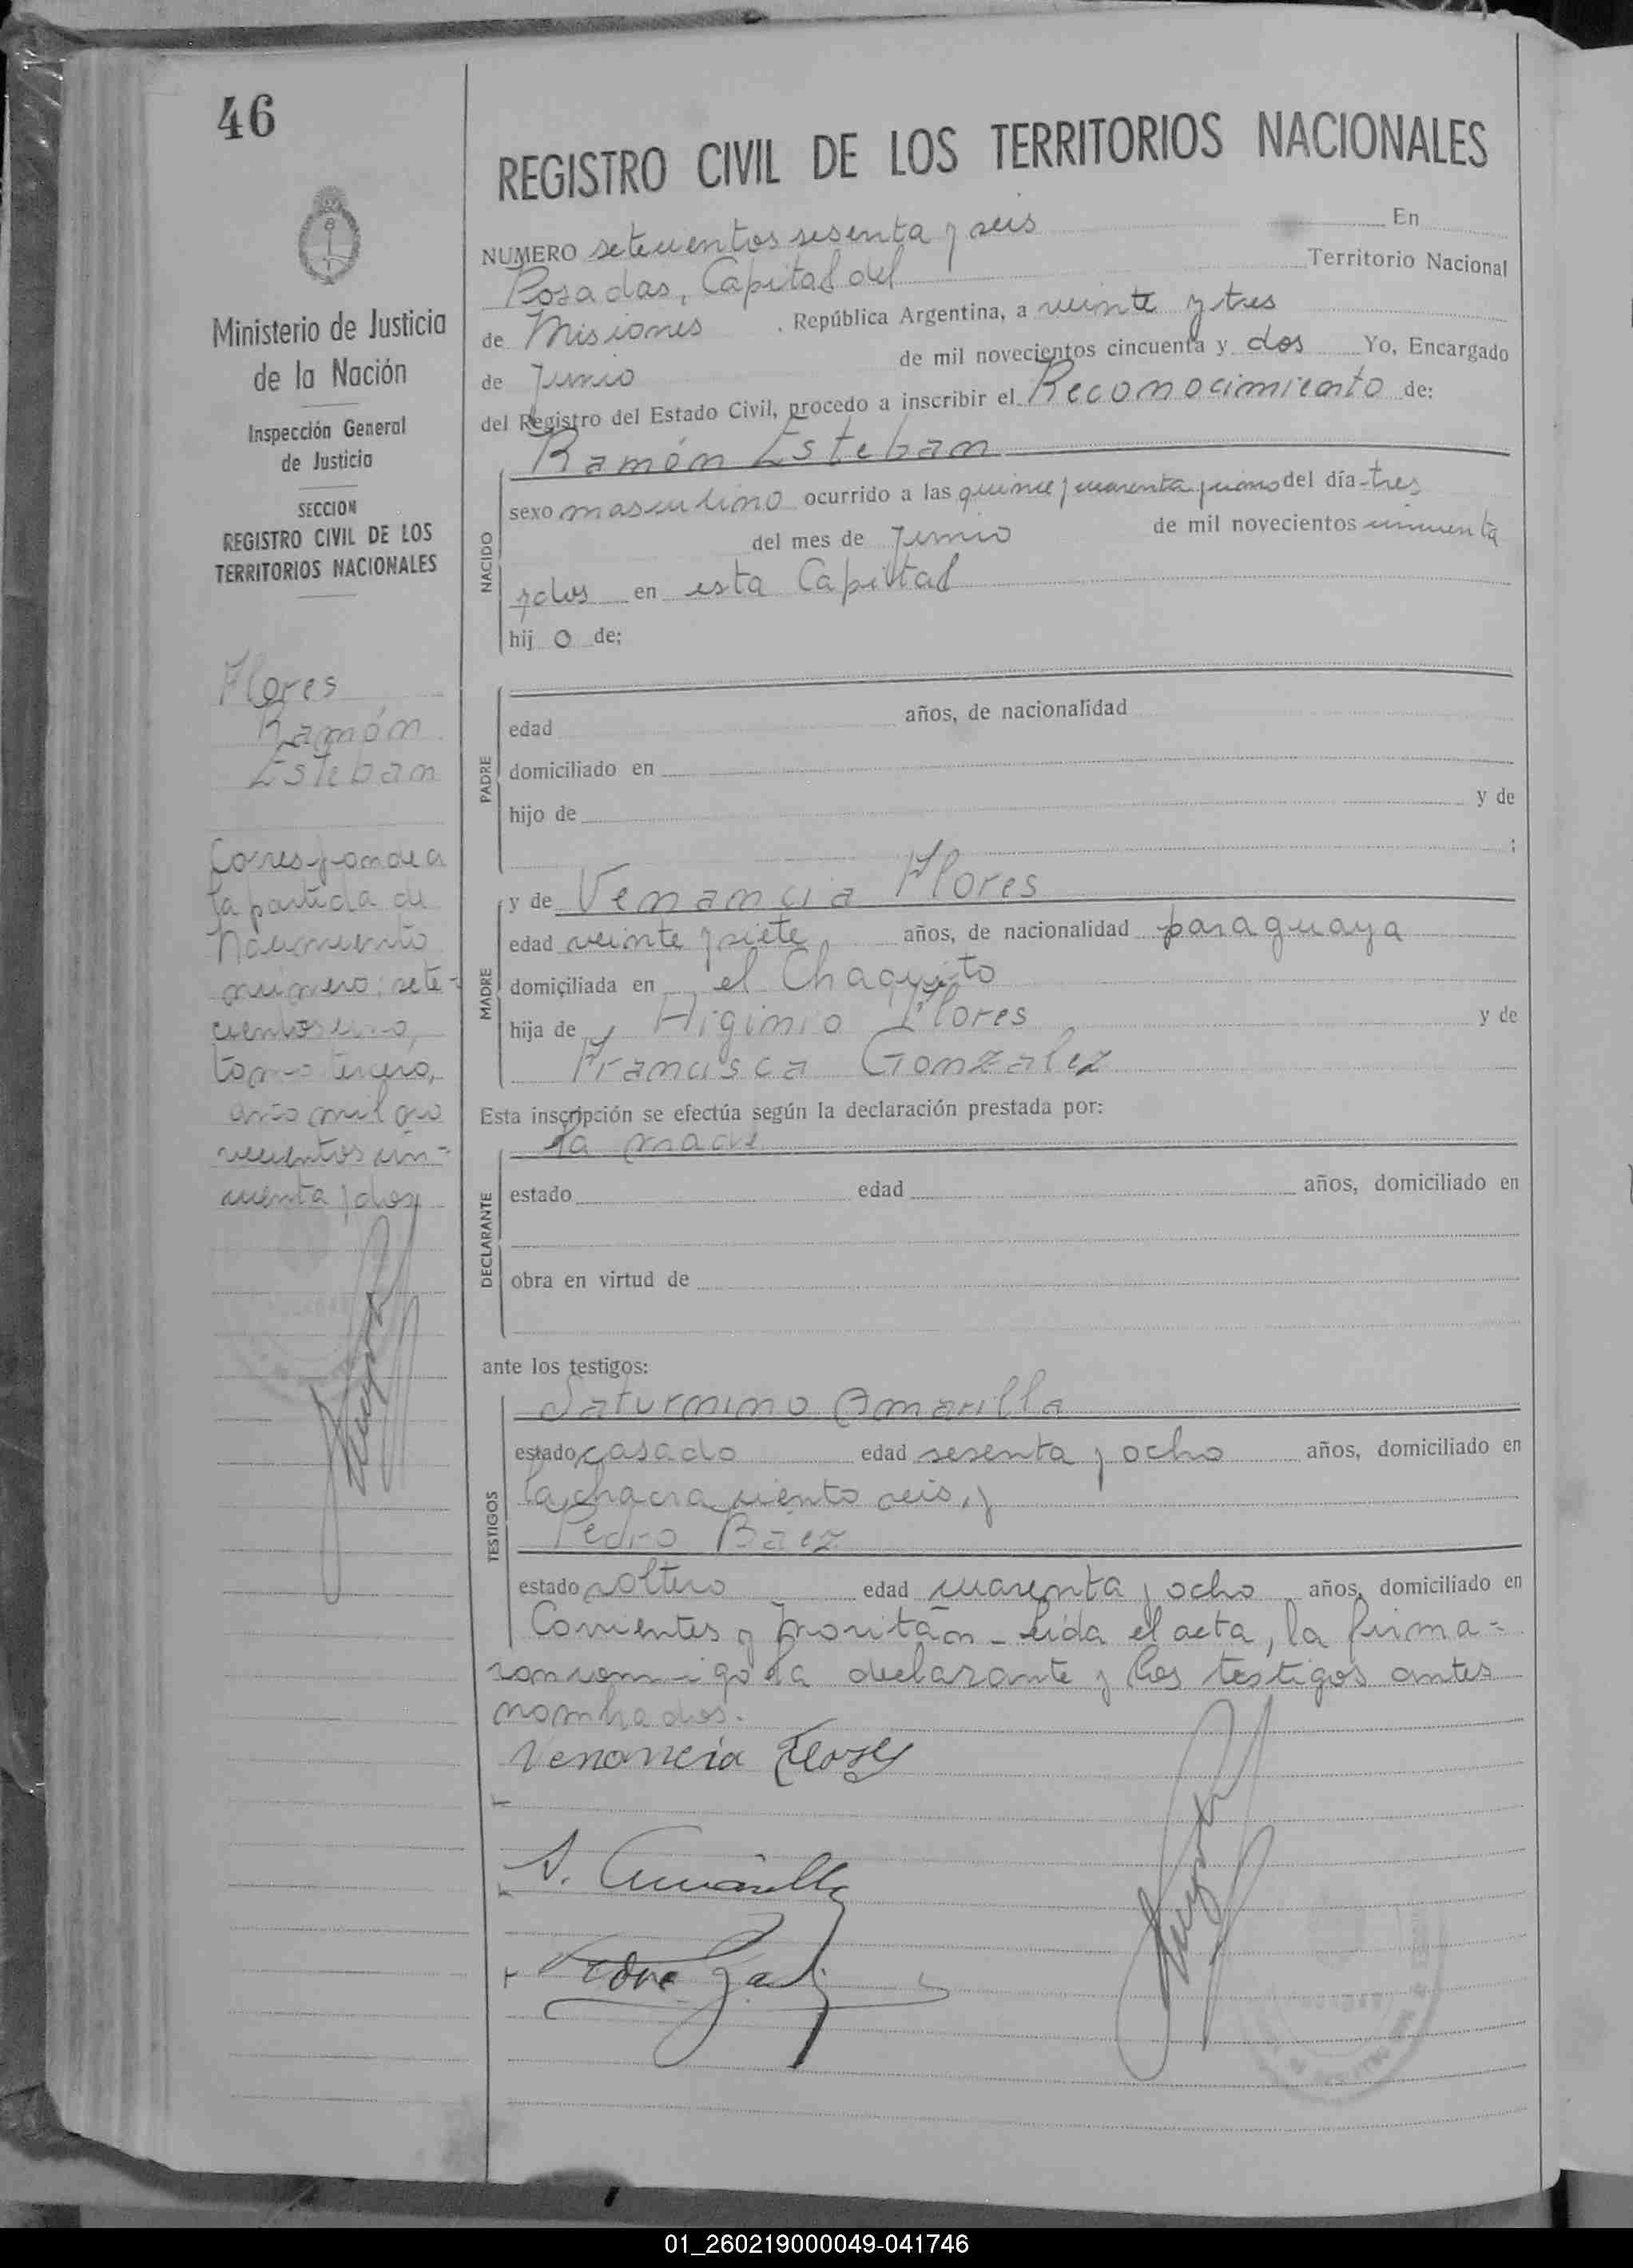 46
Ministerio de Justicia
de la Nación
Inspección General
de Justicia
SECCION
REGISTRO CIVIL DE LOS
TERRITORIOS NACIONALES
Flores
Ramón
Esteban
Corresponde a
la partida de
Nacimiento
número: sete-
cientos uno,
tomo tercero,
año mil no
vecientos cin-
cuenta y dos
REGISTRO CIVIL DE LOS TERRITORIOS NACIONALES
NUMERO setecientos sesenta y seis En
Posadas, Capital del Territorio Nacional
de Misiones . República Argentina, a veinte y tres
de Junio de mil novecientos cincuenta y dos Yo, Encargado
del Registro del Estado Civil, procedo a inscribir el Reconocimiento de:
Ramón Esteban
NACIDO
sexo masculino ocurrido a las quince y cuarenta y cinco del día tres
del mes de Junio de mil novecientos cincuenta
y dos en esta Capital
hij o de;
PADRE
edad años, de nacionalidad
domiciliado en
hijo de y de
;
MADRE
y de Venancia Flores
edad veinte y siete años, de nacionalidad paraguaya
domiciliada en el Chaquito
hija de Higinio Flores y de
Francisca Gonzalez
Esta inscripción se efectúa según la declaración prestada por:
la madre
DECLARANTE
estado edad años, domiciliado en
obra en virtud de
ante los testigos:
TESTIGOS
Saturnino Amarilla
estado casado edad sesenta y ocho años, domiciliado en
la chacra ciento seis, y
Pedro Báez
estado soltero edad cuarenta y ocho años, domiciliado en
Corrientes y Leida el acta, la firma=
ron conmigo la declarante y los testigos antes
nombrados.
Venancia Flores
S. Amarilla
01_260219000049-041746